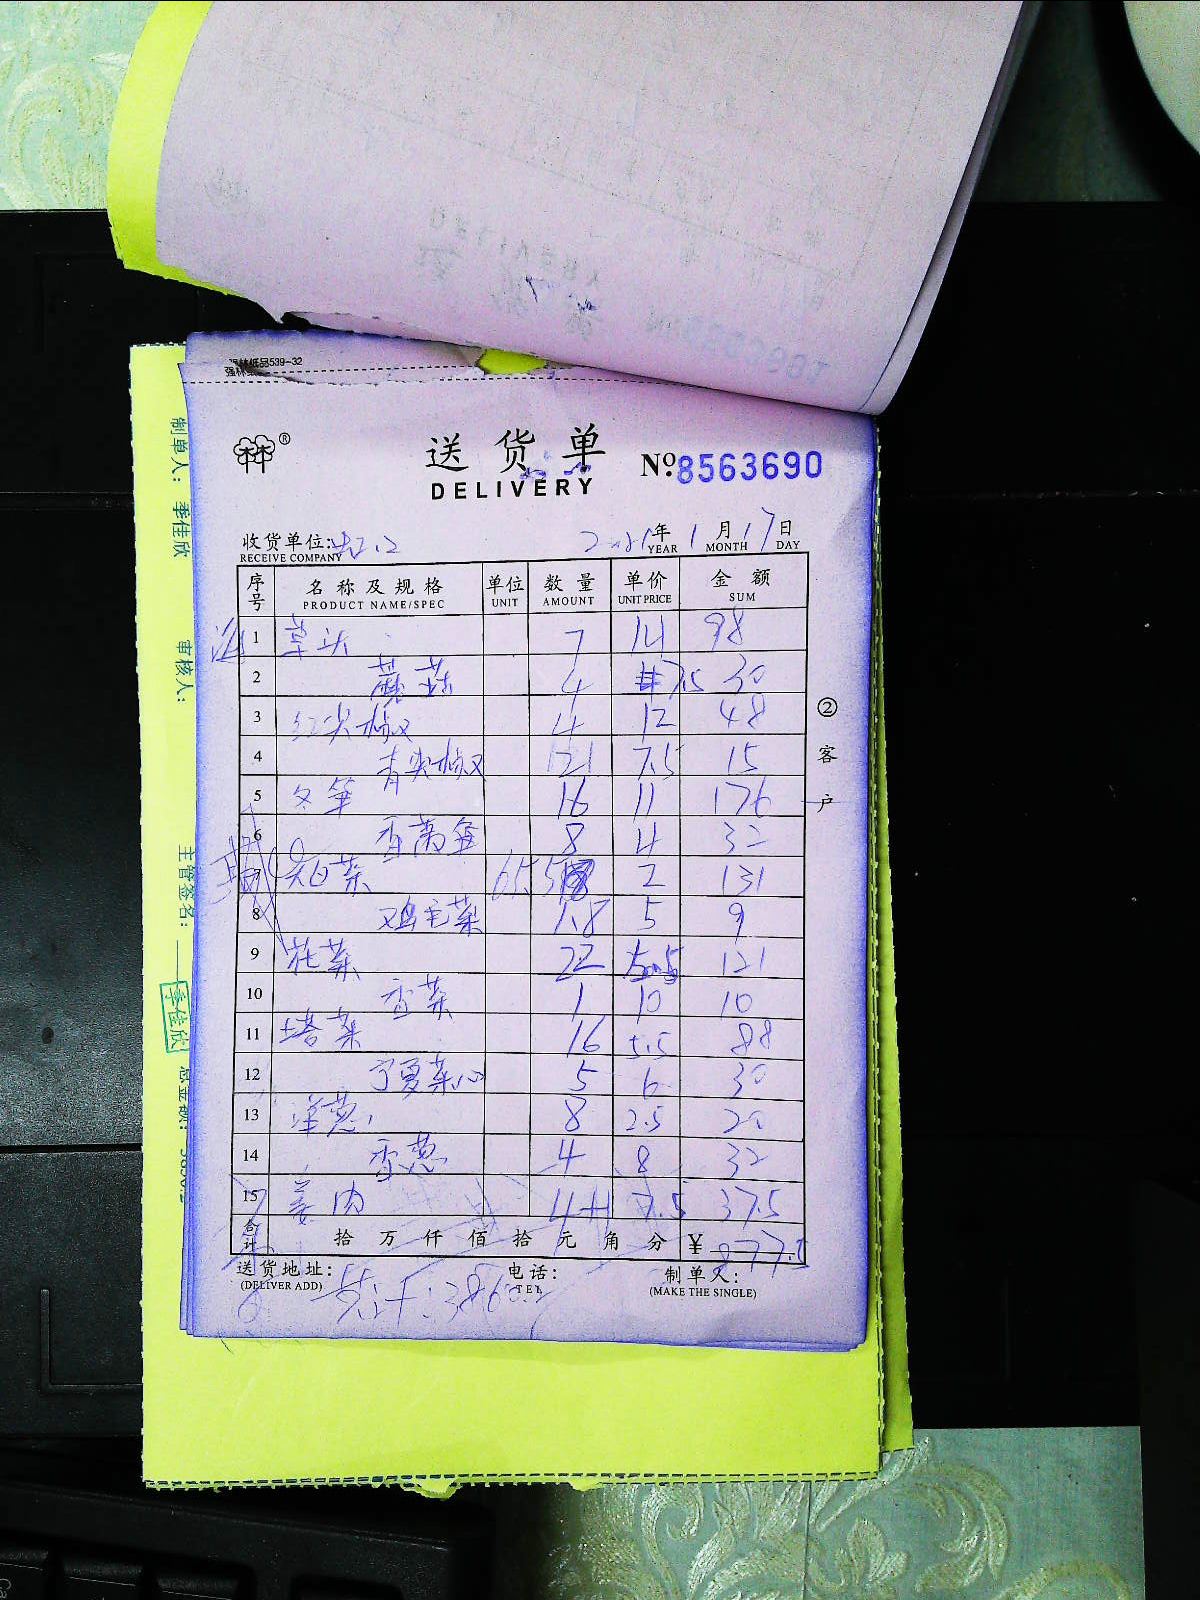 强林纸品539-32
送货单
DELIVERY
№8563690
收货单位:
RECEIVE COMPANY
年 1 月 17 日
YEAR MONTH DAY
序号 名称及规格 单位 数量 单价 金额
PRODUCT NAME/SPEC UNIT AMOUNT UNIT PRICE SUM
1 草头 7 14 98
2 蘑菇 4 7.5 30
3 红尖椒 4 12 48
4 青尖椒 2 7.5 15
5 冬笋 16 11 176
6 香莴笋 8 4 32
7 菜 65.5 2 131
8 鸡毛菜 1.8 5 9
9 花菜 22 5.5 121
10 香菜 1 10 10
11 塔菜 16 5.5 88
12 宁夏菜心 5 6 30
13 洋葱 8 2.5 20
14 香葱 4 8 32
15 姜肉 7.5 37.5
合计 拾 万 仟 佰 拾 元 角 分 ¥ 877.5
送货地址: 电话: 制单人:
(DELIVER ADD) TEL (MAKE THE SINGLE)
共计:3860.2
②客户
制单人: 季佳欣
审核人:
主管签名:
季佳欣
总金额: